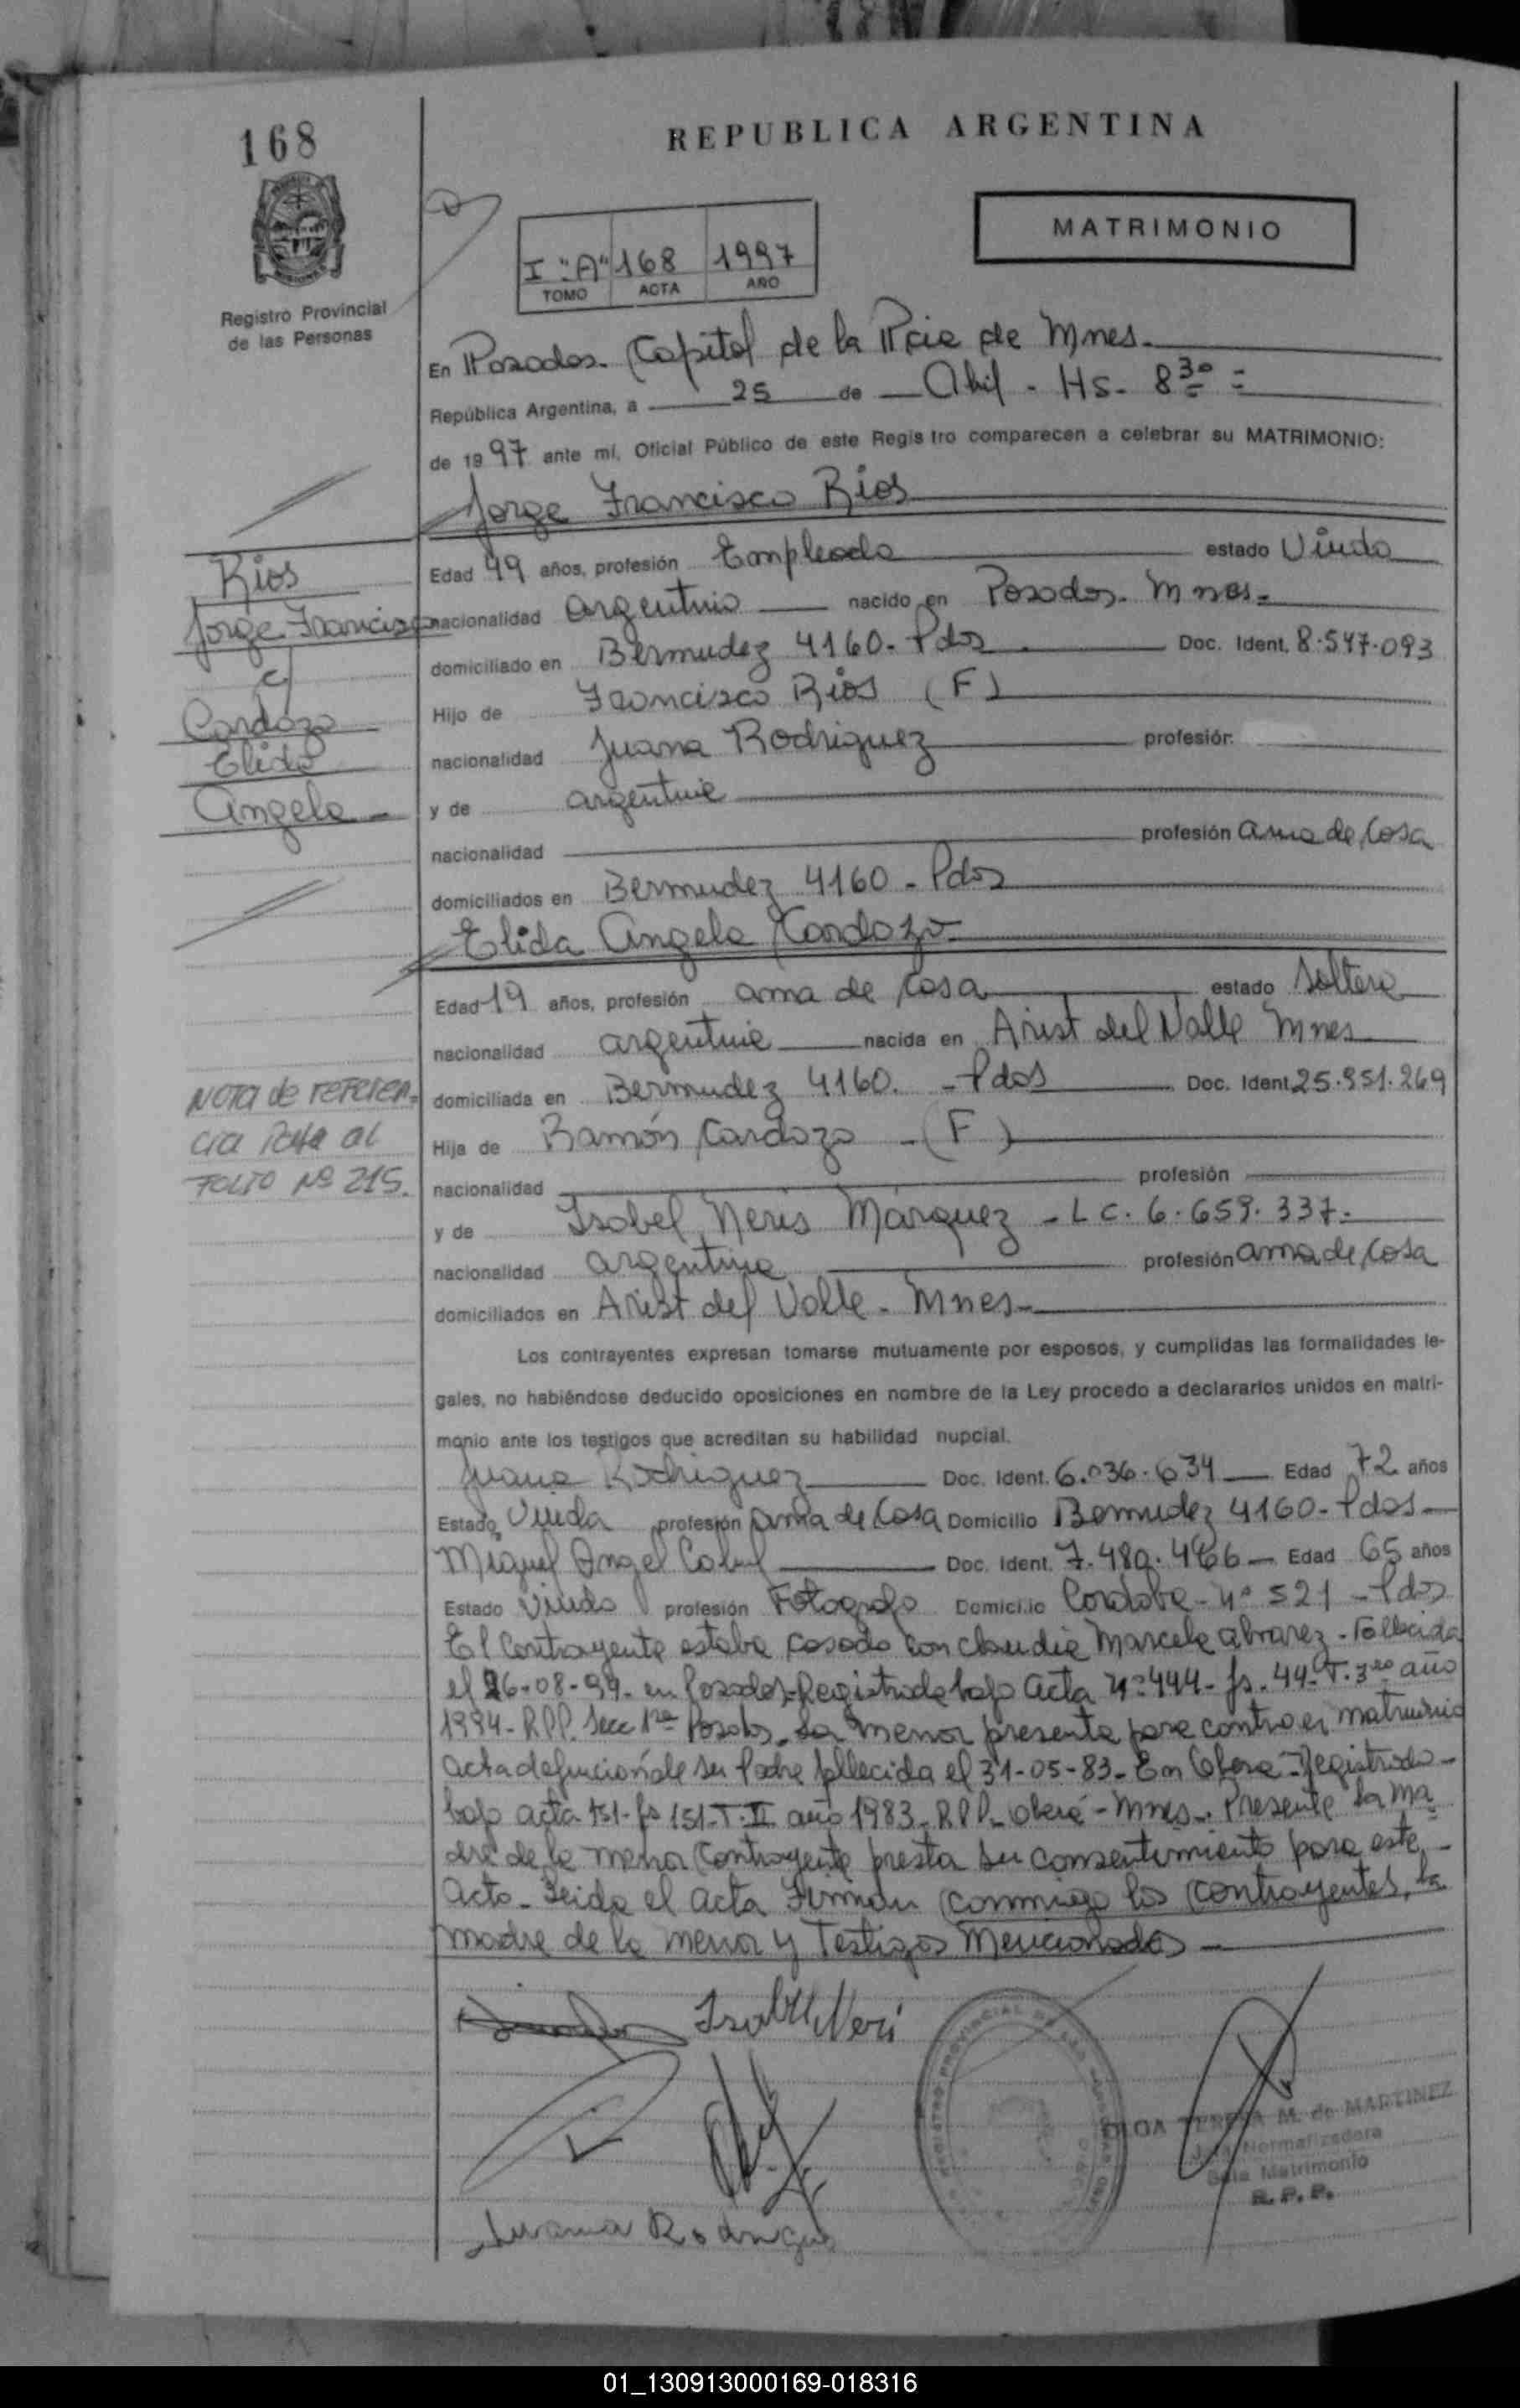 168
REPUBLICA ARGENTINA
MATRIMONIO
I "A" 168 1997
TOMO ACTA AÑO
Registro Provincial
de las Personas
En Posadas. Capital de la Pcia de Mnes.
República Argentina, a 25 de Abril - Hs. 8 30 =
de 1997 ante mí, Oficial Público de este Registro comparecen a celebrar su MATRIMONIO:
Jorge Francisco Rios
Rios
Jorge Francisco
c/
Cardozo
Elida
Angela -
Edad 49 años, profesión Empleado estado Viudo
nacionalidad argentino nacido en Posadas. Mnes.=
domiciliado en Bermudez 4160. Pdos Doc. Ident. 8.547.093
Hijo de Francisco Rios (F)
nacionalidad Juana Rodriguez profesión
y de argentina
nacionalidad profesión ama de casa
domiciliados en Bermudez 4160 - Pdos
Elida Angela Cardozo
Edad 19 años, profesión ama de casa estado soltera
nacionalidad argentina nacida en Arist del Valle Mnes
domiciliada en Bermudez 4160. - Pdos Doc. Ident. 25.951.269
Hija de Ramón Cardozo - (F)
nacionalidad profesión
NOTA de referen=
cia Pasa al
FOLIO Nº 215.
y de Isabel Neris Márquez - L C. 6.659.337.
nacionalidad argentina profesión ama de casa
domiciliados en Arist del Valle - Mnes-
Los contrayentes expresan tomarse mutuamente por esposos, y cumplidas las formalidades le-
gales, no habiéndose deducido oposiciones en nombre de la Ley procedo a declararlos unidos en matri-
monio ante los testigos que acreditan su habilidad nupcial.
Juana Rodriguez Doc. Ident. 6.036.634 Edad 72 años
Estado Viuda profesión ama de casa Domicilio Bermudez 4160 - Pdos
Miguel Angel Doc. Ident. Edad 65 años
Estado Viudo profesión Fotografo Domicilio Cordoba - nº 521 - Pdos
El contrayente estaba casado con Claudia Marcela Alvarez - Fallecida
el 26-08-94. en Posadas-Registrada bajo Acta Nº 444- fs. 44- T. 3ro año
1994- R.P.P. Secc 1ra Posadas. La menor presenta para contraer matrimonio
acta defunción de su Padre fallecido el 31-05-83- En Oberá - Registrado-
bajo acta 151- fs 151- T. II año 1983. R.P.P. Oberá - Mnes. Presente la Ma=
dre de la menor contrayente presta su consentimiento para este
acto - Leida el acta Firman conmigo los contrayentes, la
madre de la menor y Testigos Mencionados -
Isabel Neri
TERESA M. de MARTINEZ
Normalizadora
Sala Matrimonio
R. P. P.
Juana Rodrigue
01_130913000169-018316